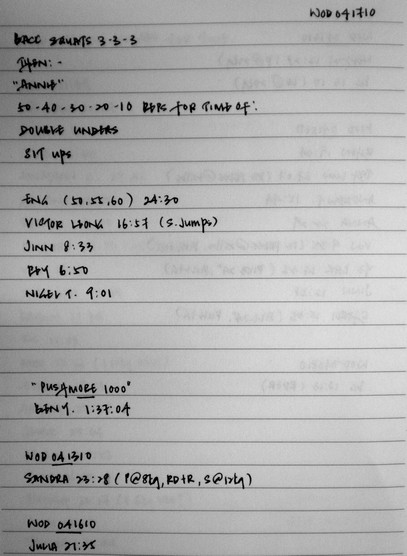 WOD 041710
BACC SQUATS 3-3-3
THEN:-
"ANNIE"
50-40-30-20-10 REPS FOR TIME OF:
DOUBLE UNDERS
SIT UPS
ENG (50,55,60) 24:30
VICTOR LEONG 16:57 (S.Jumps)
JINN 8:33
6:50
NIGEL T. 9:01
"PUSAMORE 1000"
1:37:04
WOD 041310
SANDRA 23:28 (P@8kg, RD+R, S@12kg)
WOD 041610
JULIA 21:35